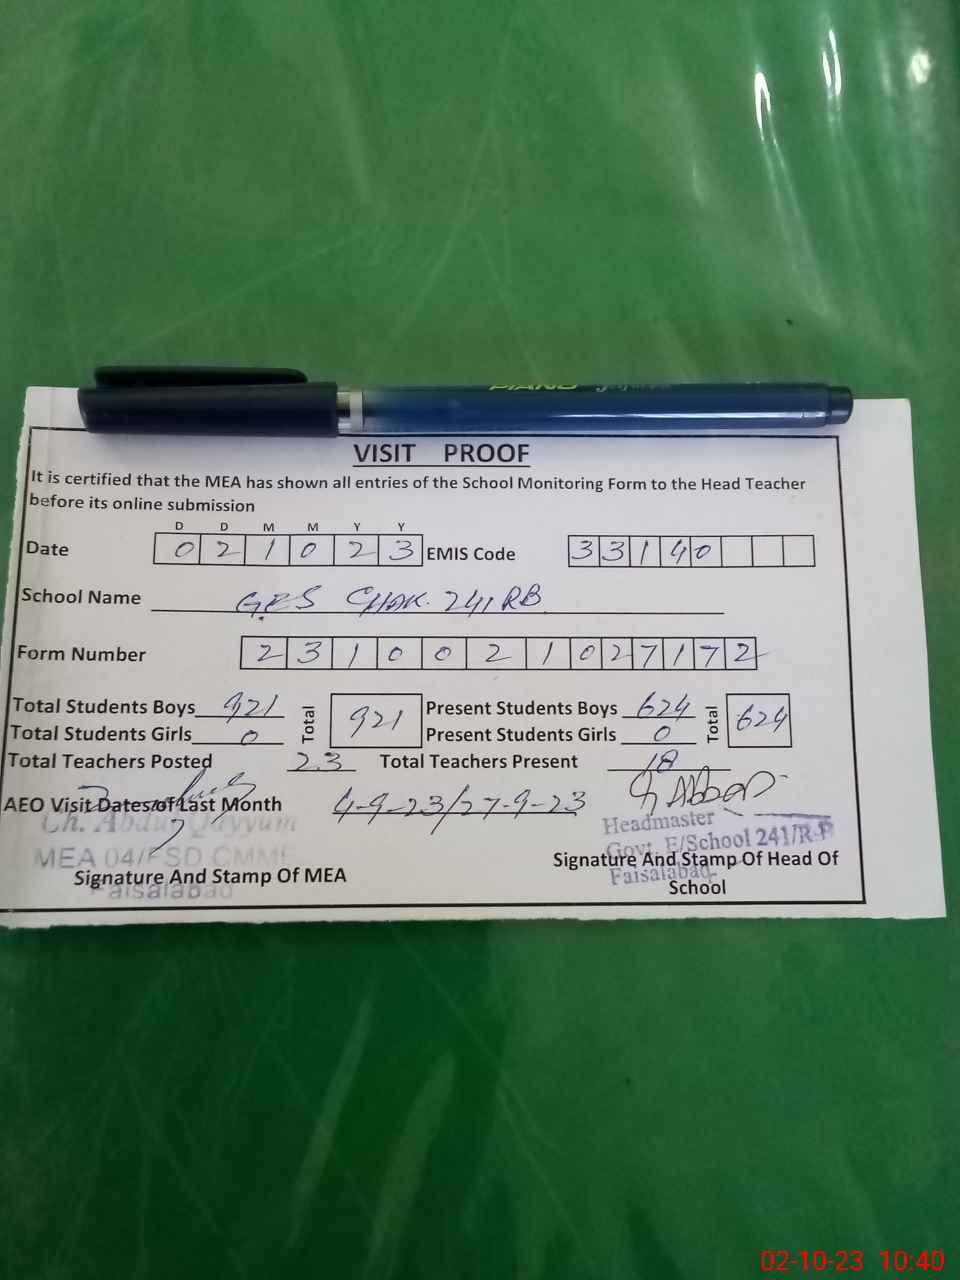 PIANO
VISIT PROOF
It is certified that the MEA has shown all entries of the School Monitoring Form to the Head Teacher
before its online submission
D D M M Y Y
Date 0 2 1 0 2 3 EMIS Code 3 3 1 4 0
School Name GES CHAK. 241 RB
Form Number 2 3 1 0 0 2 1 0 2 7 1 7 2
Total Students Boys 921 Total 921 Present Students Boys 624 Total 624
Total Students Girls 0 Present Students Girls 0
Total Teachers Posted 23 Total Teachers Present 18
AEO Visit Dates of Last Month 4-9-23/27-9-23
Ch. Abdul Qayyum
MEA 04/FSD CMMF
Faisalabad
Signature And Stamp Of MEA
Abbas
Headmaster
Govt. E/School 241/R-B
Faisalabad
Signature And Stamp Of Head Of
School
02-10-23 10:40